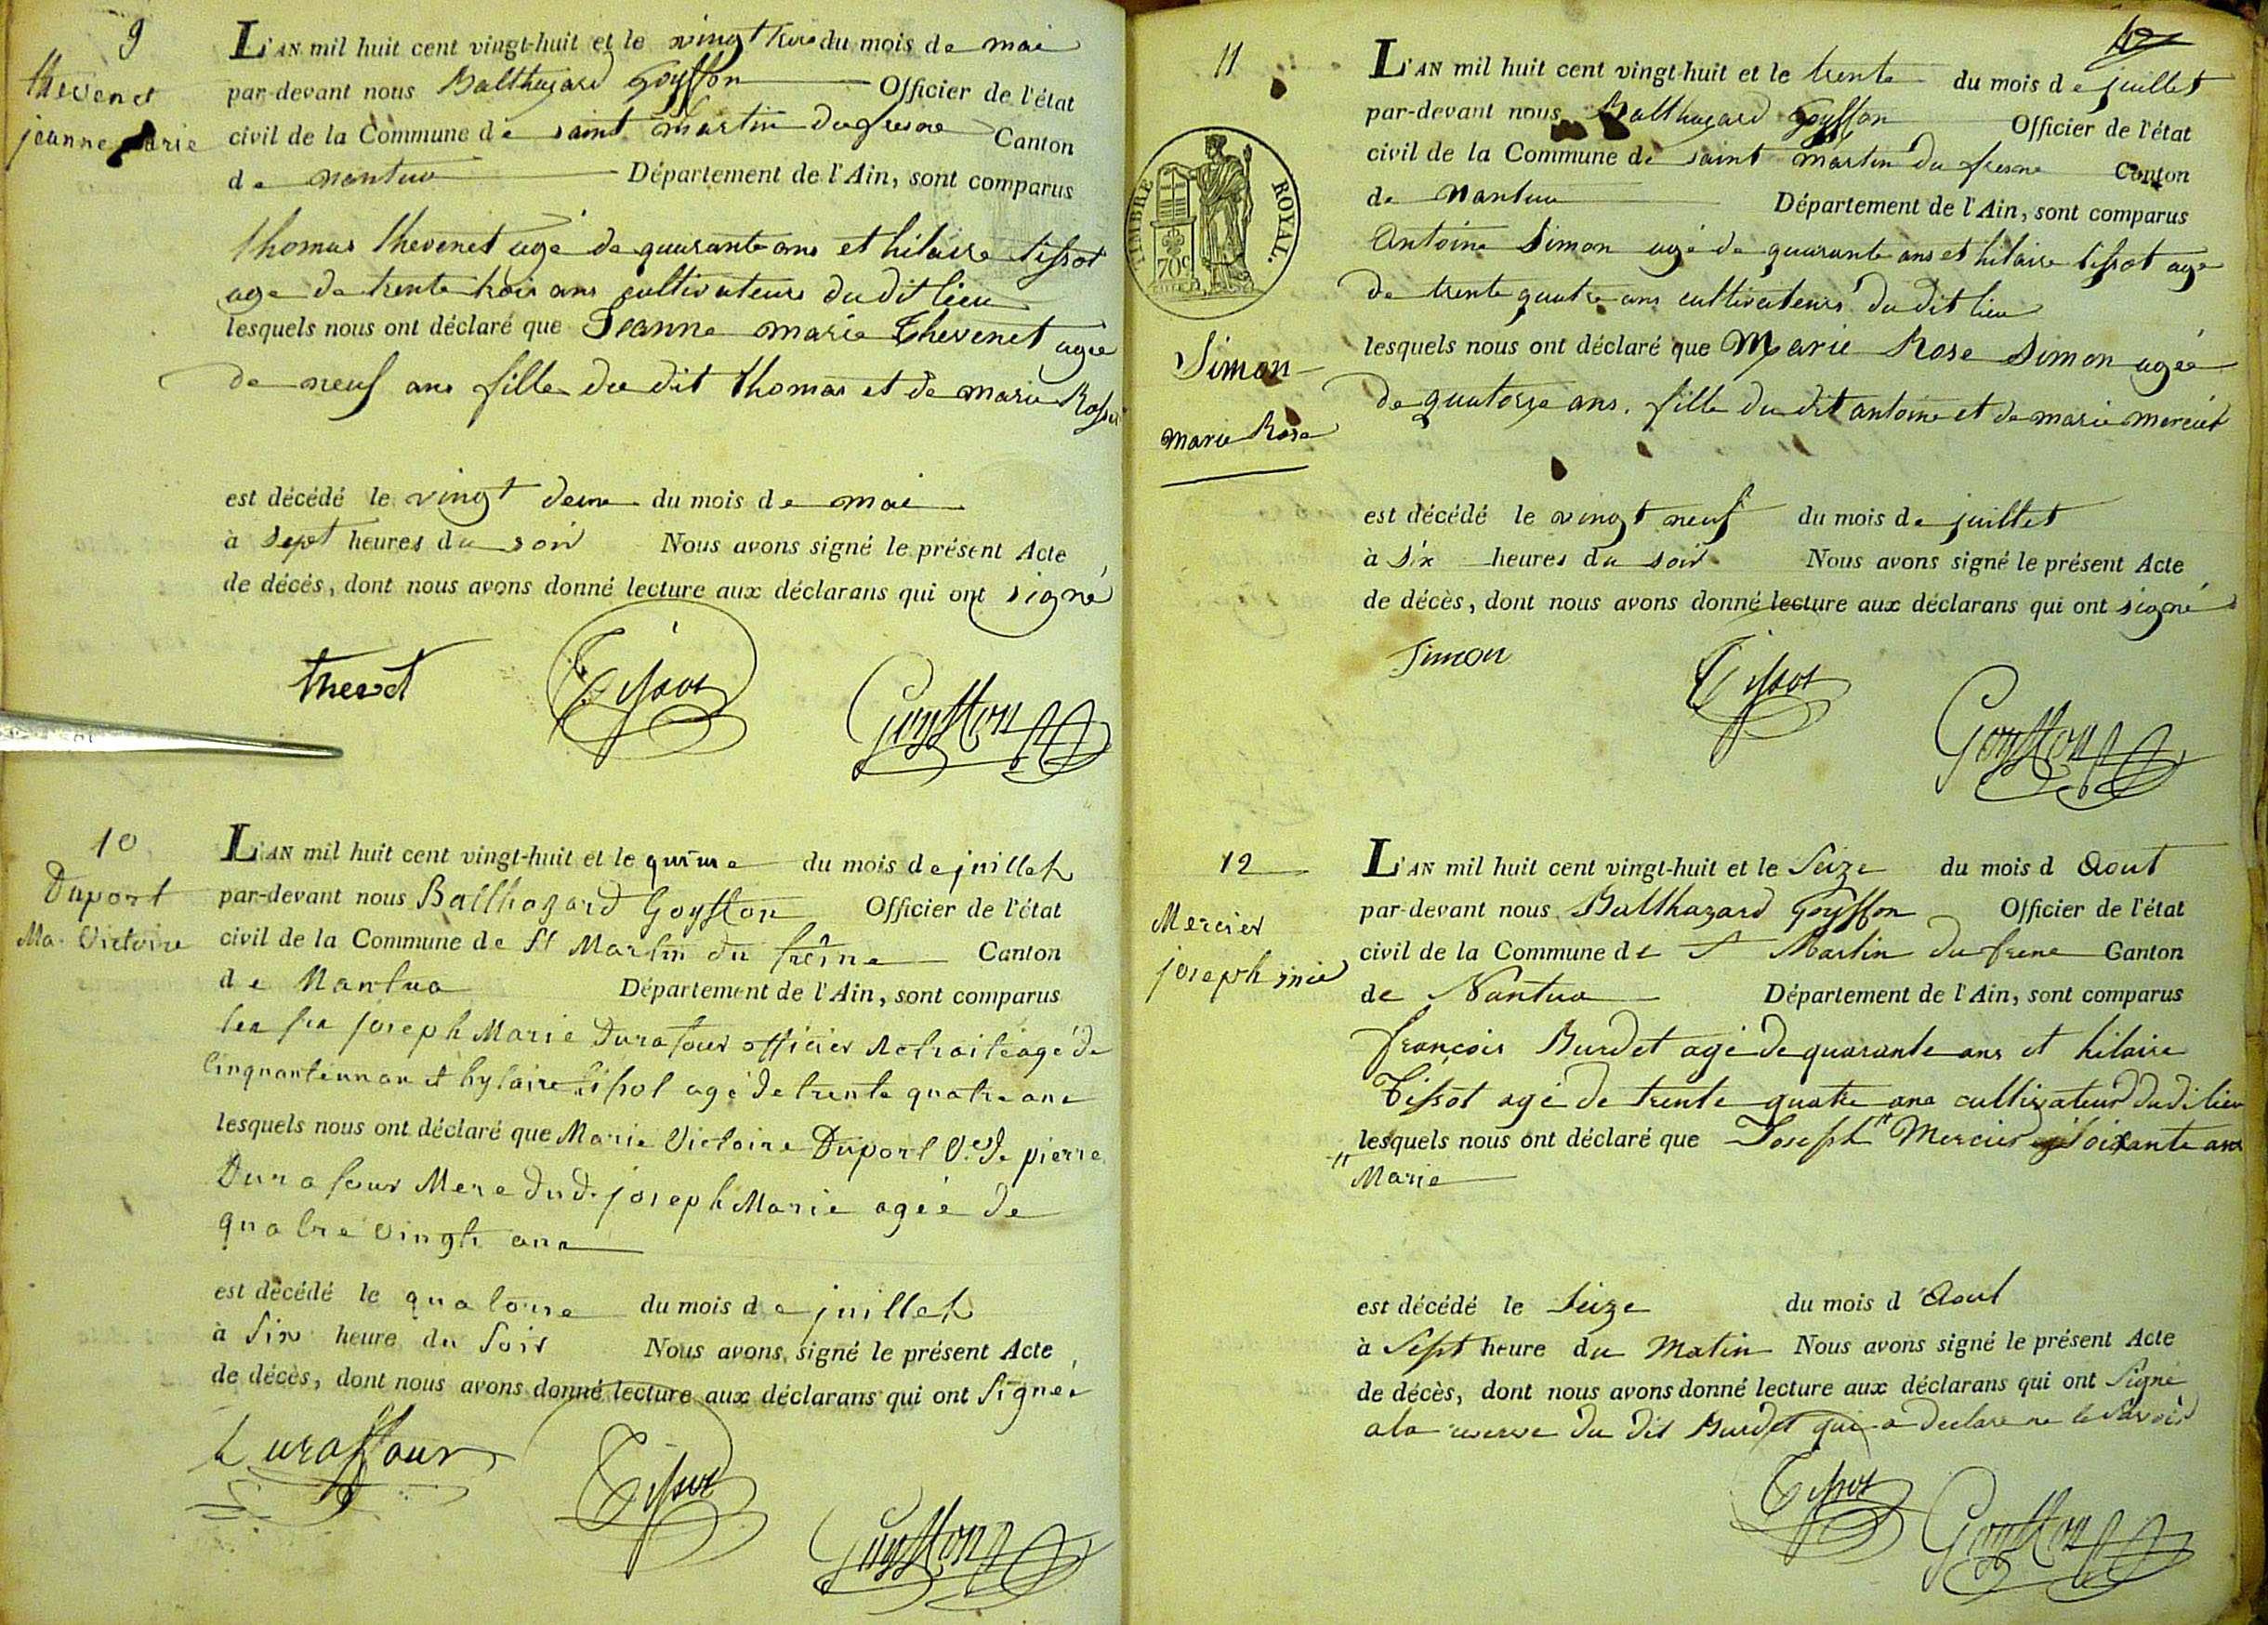 9
thevenet
jeanne marie
L'AN mil huit cent vingt-huit et le vingt trois du mois de mai
par-devant nous Balthazard Goyffon Officier de l'état
civil de la Commune de saint martin du fresne Canton
de nantua Département de l'Ain, sont comparus
thomas thevenet agé de quarante ans et hilaire tissot
age de trente trois ans cultivateurs du dit lieu
lesquels nous ont déclaré que Jeanne marie Thevenet agée
de neuf ans fille du dit thomas et de marie
est décédé le vingt deux du mois de mai
à sept heures du soir Nous avons signé le présent Acte
de décés, dont nous avons donné lecture aux déclarans qui ont signé
Tissot
Goyffon
10
Duport
Ma. Victoire
L'AN mil huit cent vingt-huit et le quinze du mois de juillet
par-devant nous Balthazard Goyffon Officier de l'état
civil de la Commune de St Martin du frêsne Canton
de Nantua Département de l'Ain, sont comparus
joseph Marie Durafour officier Retraité agé de
Cinquante un an et hylaire tissot agé de trente quatre ans
lesquels nous ont déclaré que Marie Victoire Duport Ve. de pierre
Durafour Mere dud. joseph Marie agée de
quatre vingts ans
est décédé le quatorze du mois de juillet
à six heure du soir Nous avons signé le présent Acte
de décès, dont nous avons donné lecture aux déclarans qui ont signés
Duraffour
Tissot
Goyffon
11
TIMBRE ROYAL.
70c
Simon
marie Rose
L'AN mil huit cent vingt-huit et le trente du mois de juillet
par-devant nous Balthazard Goyffon Officier de l'état
civil de la Commune de saint martin du fresne Canton
de Nantua Département de l'Ain, sont comparus
Antoine Simon agé de quarante ans et hilaire tissot age
de trente quatre ans cultivateurs du dit lieu
lesquels nous ont déclaré que Marie Rose Simon agée
de quatorze ans. fille du dit antoine et de marie mercier
est décédé le vingt neuf du mois de juillet
à six heures du soir Nous avons signé le présent Acte
de décès, dont nous avons donné lecture aux déclarans qui ont signé
Simon
Tissot
Goyffon
12
Mercier
joseph mie
L'AN mil huit cent vingt-huit et le Seize du mois d Aout
par-devant nous Balthazard Goyffon Officier de l'état
civil de la Commune de St Martin du frene Canton
de Nantua Département de l'Ain, sont comparus
françois Burdet agé de quarante ans et hilaire
Tissot agé de trente quatre ans cultivateur dudi lieu
lesquels nous ont déclaré que Joseph " Mercier agé soixante ans
" Marie
est décédé le Seize du mois d Aout
à Sept heure du Matin Nous avons signé le présent Acte
de décès, dont nous avons donné lecture aux déclarans qui ont Signé
a la reserve du dit Burdet qui a declare ne le savoir
Tissot
Goyffon